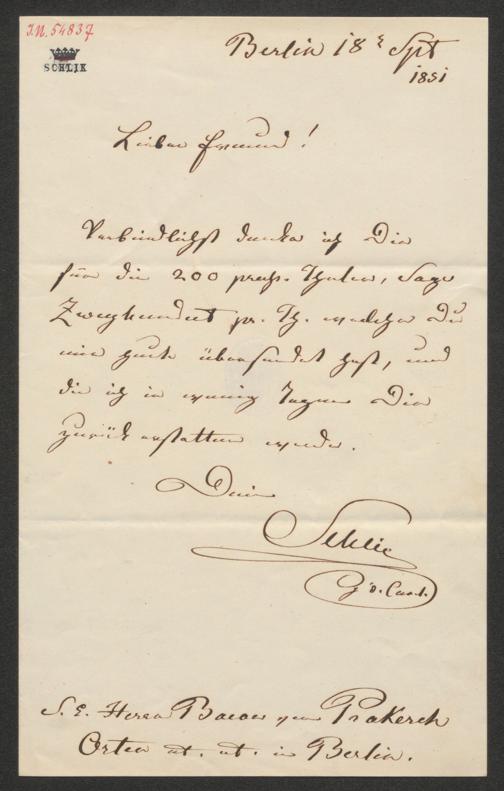 I.N. 54837
SCHLIK
Berlin 18 Spt
1851
Lieber Freund!
Verbindlichst danke ich Dir
für die 200 preuß. Thaler, Sage
Zweyhundert pr. Th. welche Du
mir heute übersendet hast, und
die ich in wenig Tagen Dir
zurück erstatten werde.
Dein
Schlik
G. d. Cav.
S. E. Herrn Baron von Prokesch
Osten etc. etc. in Berlin.